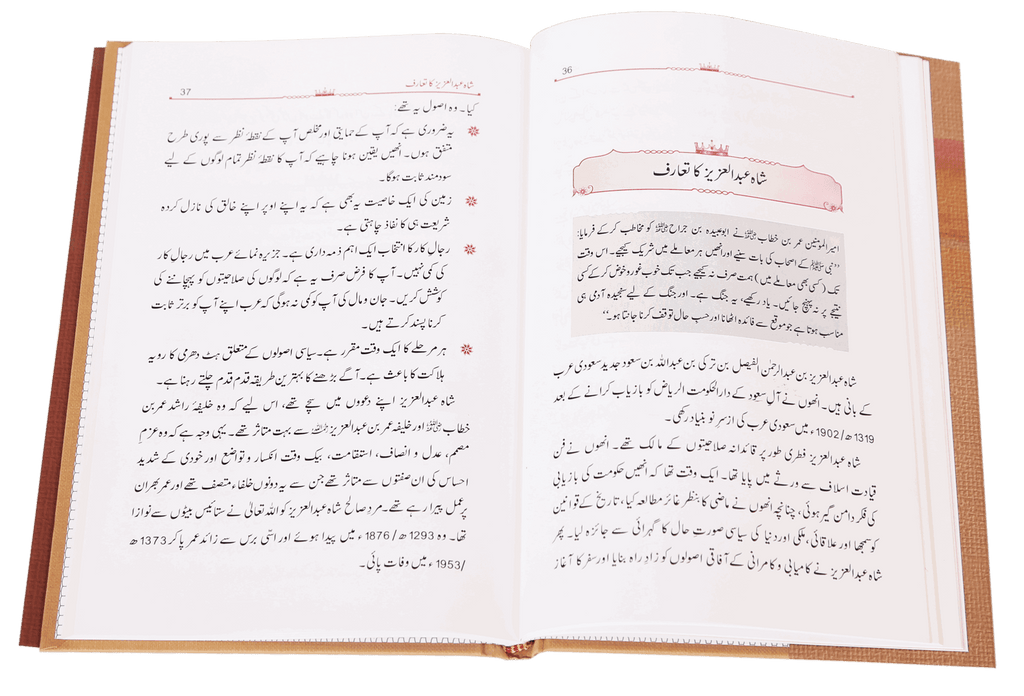 36
شاہ عبدالعزیز کا تعارف
امیرالمومنین عمر بن خطاب ﷜ نے ابوعبیدہ بن جراح ﷜ کو مخاطب کر کے فرمایا:
”نبی ﷺ کے اصحاب کی بات سنیے اور انھیں ہر معاملے میں شریک کیجیے۔ اس وقت
تک (کسی بھی معاملے میں) ہمت صرف نہ کیجیے جب تک خوب غور و خوض کر کے کسی
نتیجے پر نہ پہنچ جائیں۔ یاد رکھیے، یہ جنگ ہے۔ اور جنگ کے لیے سنجیدہ آدمی ہی
مناسب ہوتا ہے جو موقع سے فائدہ اٹھانا اور حسب حال توقف کرنا جانتا ہو۔“
شاہ عبدالعزیز بن عبدالرحمٰن الفیصل بن ترکی بن عبداللہ بن سعود جدید سعودی عرب
کے بانی ہیں۔ انھوں نے آلِ سعود کے دارالحکومت الریاض کو بازیاب کرانے کے بعد
1319ھ/1902ء میں سعودی عرب کی ازسرِ نو بنیاد رکھی۔
شاہ عبدالعزیز فطری طور پر قائدانہ صلاحیتوں کے مالک تھے۔ انھوں نے فن
قیادت اسلاف سے ورثے میں پایا تھا۔ ایک وقت تھا کہ انھیں حکومت کی بازیابی
کی فکر دامن گیر ہوئی، چنانچہ انھوں نے ماضی کا بنظر غائر مطالعہ کیا، تاریخ کے قوانین
کو سمجھا اور علاقائی، ملکی اور دنیا کی سیاسی صورتِ حال کا گہرائی سے جائزہ لیا۔ پھر
شاہ عبدالعزیز نے کامیابی و کامرانی کے آفاقی اصولوں کو زادِ راہ بنایا اور سفر کا آغاز
شاہ عبدالعزیز کا تعارف 37
کیا۔ وہ اصول یہ تھے:
یہ ضروری ہے کہ آپ کے حمایتی اور مخلص آپ کے نقطۂ نظر سے پوری طرح
متفق ہوں۔ انھیں یقین ہونا چاہیے کہ آپ کا نقطۂ نظر تمام لوگوں کے لیے
سودمند ثابت ہوگا۔
زمین کی ایک خاصیت یہ بھی ہے کہ یہ اپنے اوپر اپنے خالق کی نازل کردہ
شریعت ہی کا نفاذ چاہتی ہے۔
رجالِ کار کا انتخاب ایک اہم ذمہ داری ہے۔ جزیرہ نمائے عرب میں رجال کار
کی کمی نہیں۔ آپ کا فرض صرف یہ ہے کہ لوگوں کی صلاحیتوں کو پہچاننے کی
کوشش کریں۔ جان و مال کی آپ کو کمی نہ ہوگی کہ عرب اپنے آپ کو برتر ثابت
کرنا پسند کرتے ہیں۔
ہر مرحلے کا ایک وقت مقرر ہے۔ سیاسی اصولوں کے متعلق ہٹ دھرمی کا رویہ
ہلاکت کا باعث ہے۔ آگے بڑھنے کا بہترین طریقہ قدم قدم چلتے رہنا ہے۔
شاہ عبدالعزیز اپنے دعووں میں سچے تھے، اس لیے کہ وہ خلیفۂ راشد عمر بن
خطاب ﷜ اور خلیفہ عمر بن عبدالعزیز ﷫ سے بہت متاثر تھے۔ یہی وجہ ہے کہ وہ عزم
مصمم، عدل و انصاف، استقامت، بیک وقت انکسار و تواضع اور خودی کے شدید
احساس کی ان صفتوں سے متاثر تھے جن سے یہ دونوں خلفاء متصف تھے اور عمر بھر ان
پر عمل پیرا رہے تھے۔ مردِ صالح شاہ عبدالعزیز کو اللہ تعالیٰ نے ستائیس بیٹوں سے نوازا
تھا۔ وہ 1293ھ/1876ء میں پیدا ہوئے اور اسّی برس سے زائد عمر پا کر 1373ھ
/1953ء میں وفات پائی۔